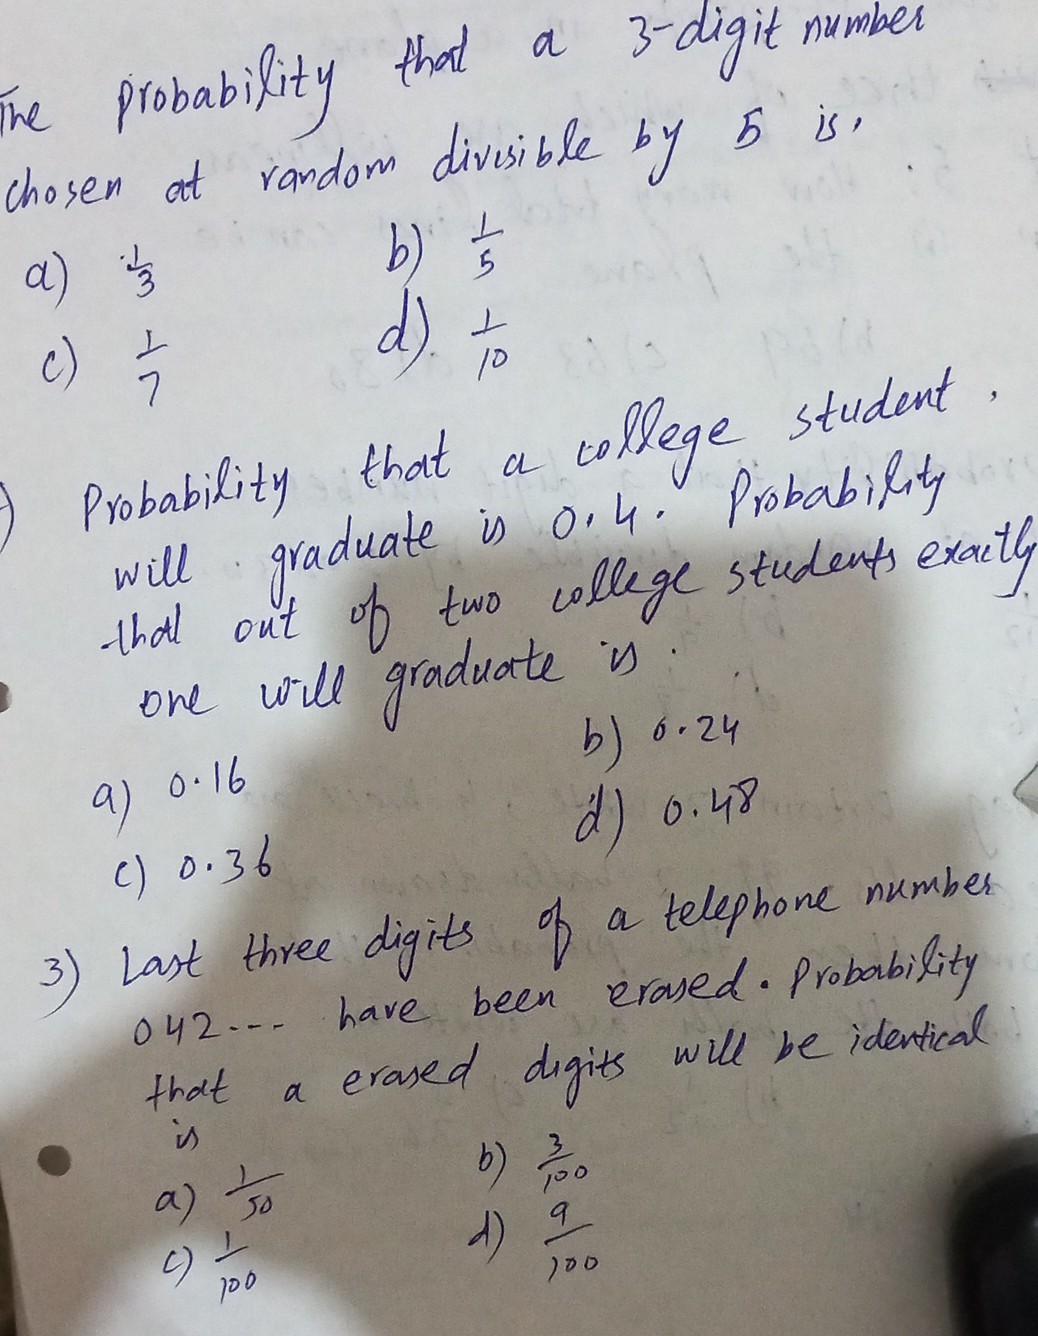 The probability that a 3-digit number
chosen at random divisible by 5 is.
a) 1/3 b) 1/5
c) 1/7 d) 1/10
) Probability that a college student.
will graduate is 0.4. Probability
that out of two college students exactly
one will graduate is.
a) 0.16 b) 0.24
c) 0.36 d) 0.48
3) Last three digits of a telephone number
042--- have been erased. Probability
that a erased digits will be identical
is
a) 1/50 b) 3/100
c) 1/100 d) 9/100